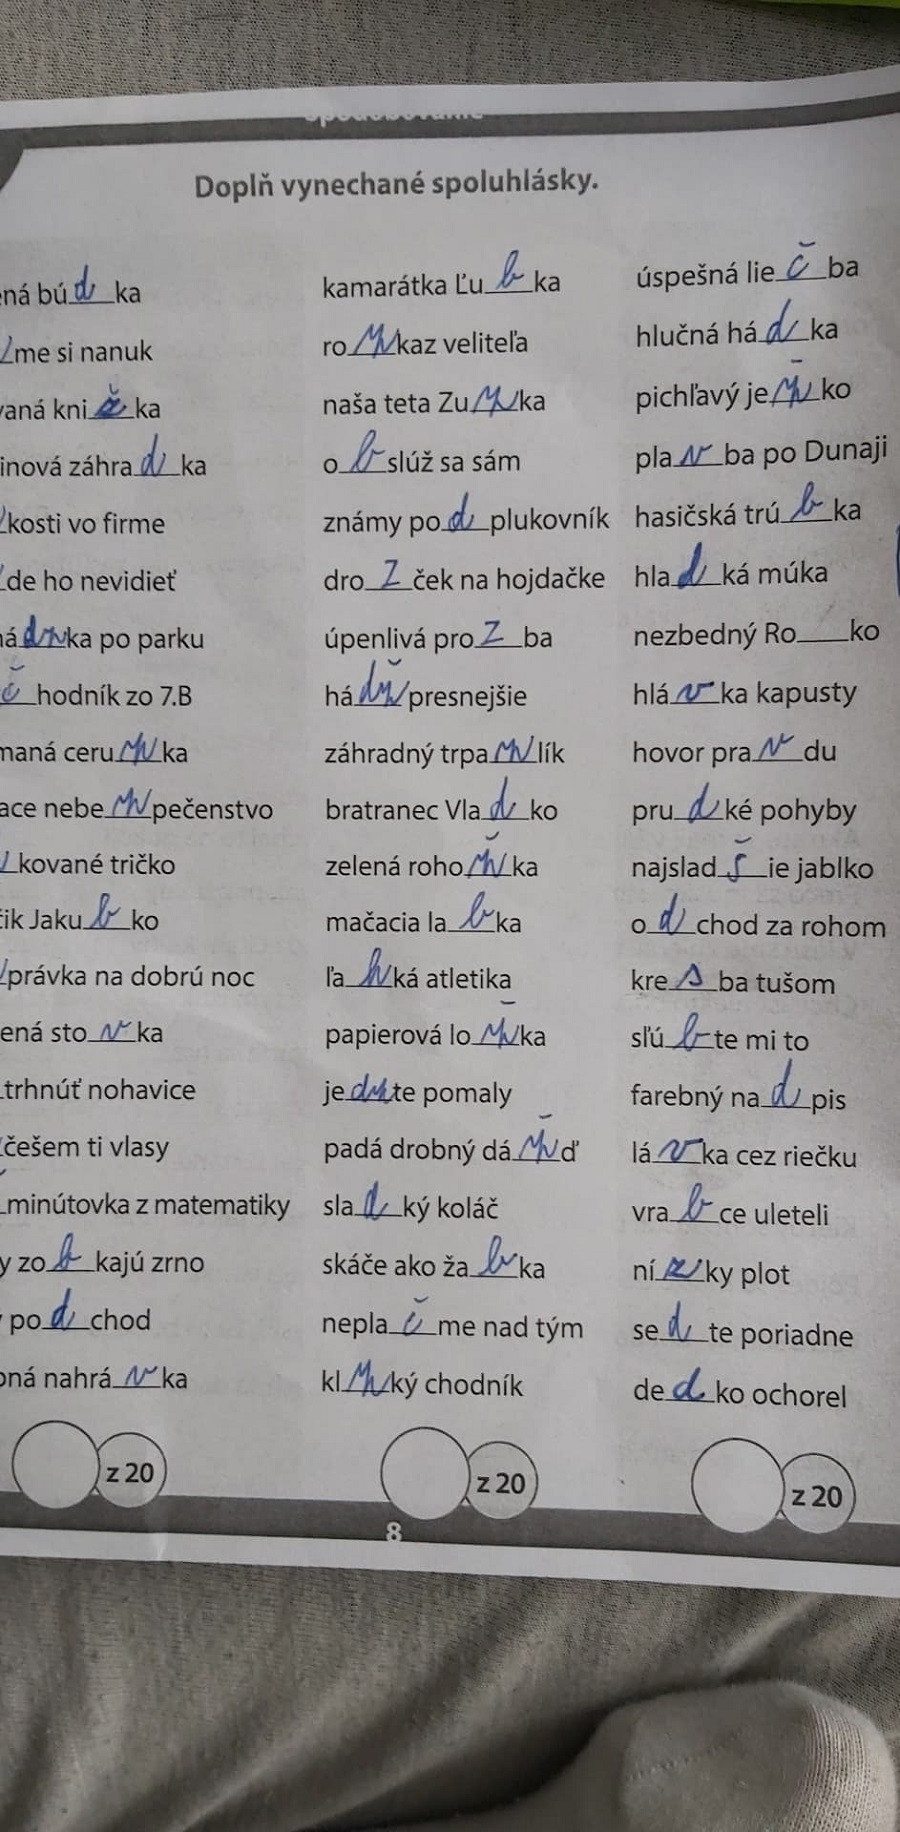 Doplň vynechané spoluhlásky.
ná búdka
me si nanuk
vaná knižka
inová záhradka
kosti vo firme
de ho nevidieť
ádzka po parku
čhodník zo 7.B
maná ceruzka
ace nebezpečenstvo
kované tričko
ik Jakubko
právka na dobrú noc
ená stovka
trhnúť nohavice
češem ti vlasy
minútovka z matematiky
y zobkajú zrno
podchod
ná nahrávka
z 20
kamarátka Ľubka
rozkaz veliteľa
naša teta Zuzka
obslúž sa sám
známy podplukovník
drozček na hojdačke
úpenlivá prozba
hádžpresnejšie
záhradný trpazlík
bratranec Vladko
zelená rohožka
mačacia labka
ľahká atletika
papierová ložka
jedzte pomaly
padá drobný dážď
sladký koláč
skáče ako žabka
neplačme nad tým
klzký chodník
z 20
úspešná liečba
hlučná hádka
pichľavý ježko
plavba po Dunaji
hasičská trúbka
hladká múka
nezbedný Ro___ko
hlávka kapusty
hovor pravdu
prudké pohyby
najsladšie jablko
odchod za rohom
kresba tušom
sľúbte mi to
farebný nadpis
lávka cez riečku
vrabce uleteli
nízky plot
sedte poriadne
dedko ochorel
z 20
8